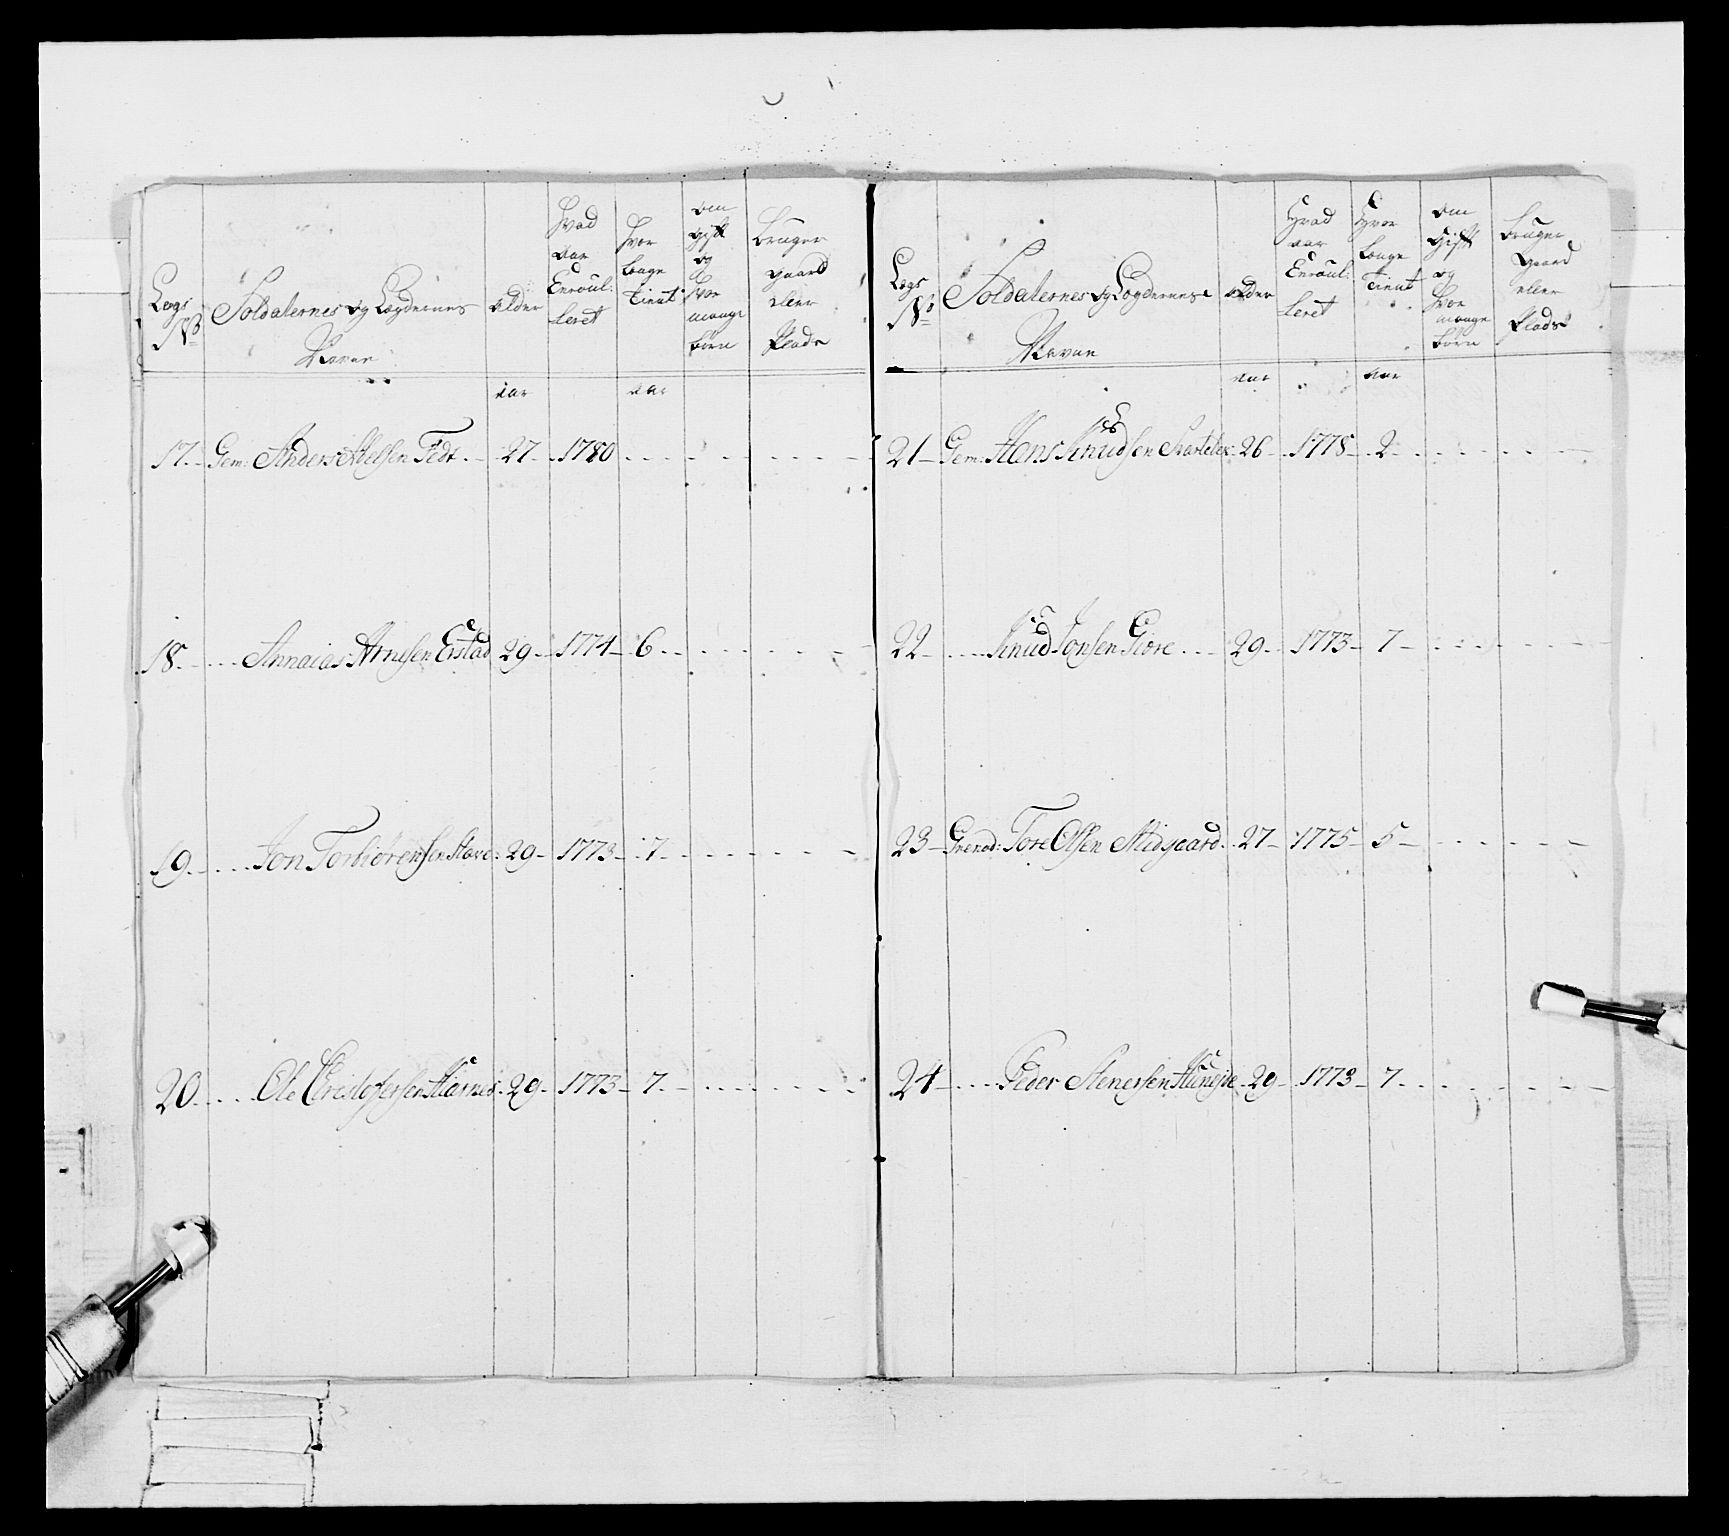 Legs No
Soldaternes og Lægdernes Navne
alder
hvad aar Enroulleret
hvor lange tient
om gift og hvor mange børn
bruger gaard eller Plads
aar aar
17. Gem: Anders Nelsen Fedt. 27. 1780
18. Annaias Arnesen Erstad 29 1774 6
19. Jon Torbiørensen 29 1773 7
20. Ole Christofersen 29 1773 7
Legs No
Soldaternes og Lægdernes Navne
alder
Hvad aar Enroulleret
Hvor lange tient
om gift og hvor mange børn
bruger gaard eller Plads
aar aar
21 Gem: Hans Knudsen 26 1778 2
22 Knud Jonsen Giøre 29 1773 7
23 Grenad: Tore Olsen Midgaard 27 1775 5
24 Peder Stenersen 29 1773 7